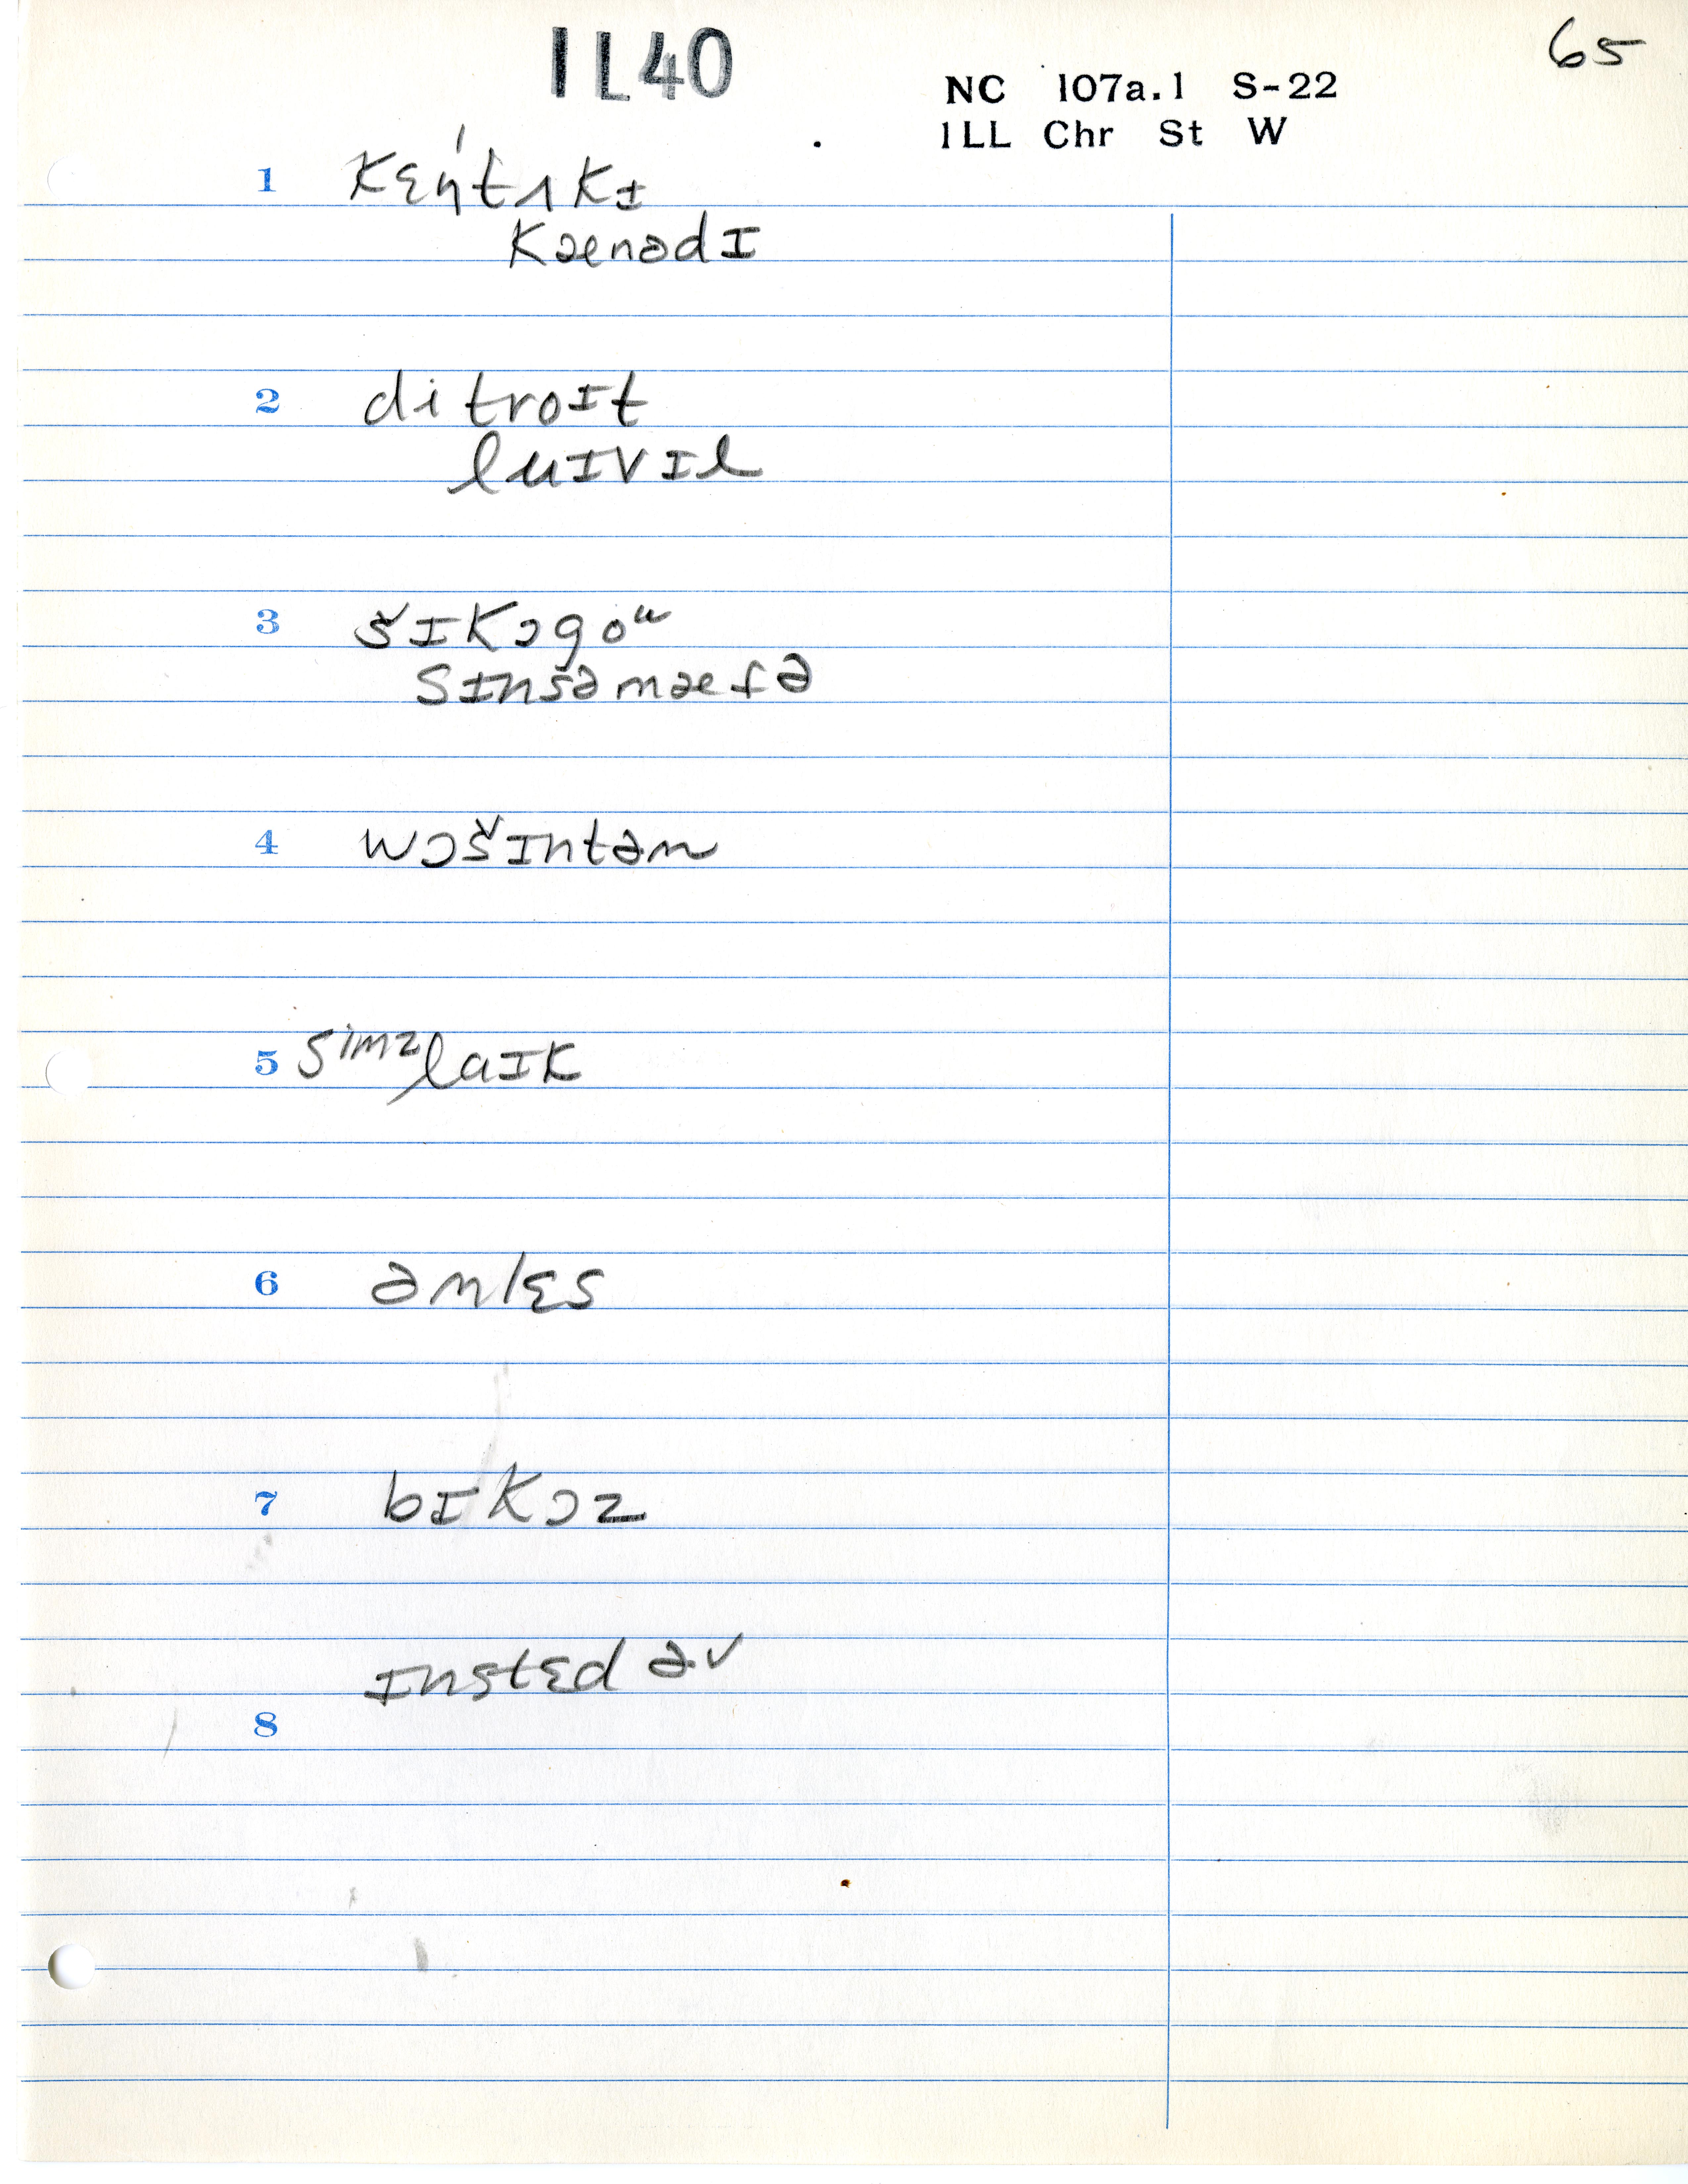 IL40
65
NC 107a.1 S-22
ILL Chr St W
1 kɛn̩'tʌkɪ
kænədɪ
2 ditroɪt
luɪvɪl
3 šɪkɔgoᵘ
sɪnsəmæfə
4 wɔšɪntən
5 sⁱᵐᶻlaɪk
6 ənlɛs
7 bɪkɔz
ɪnstɛd əv
8